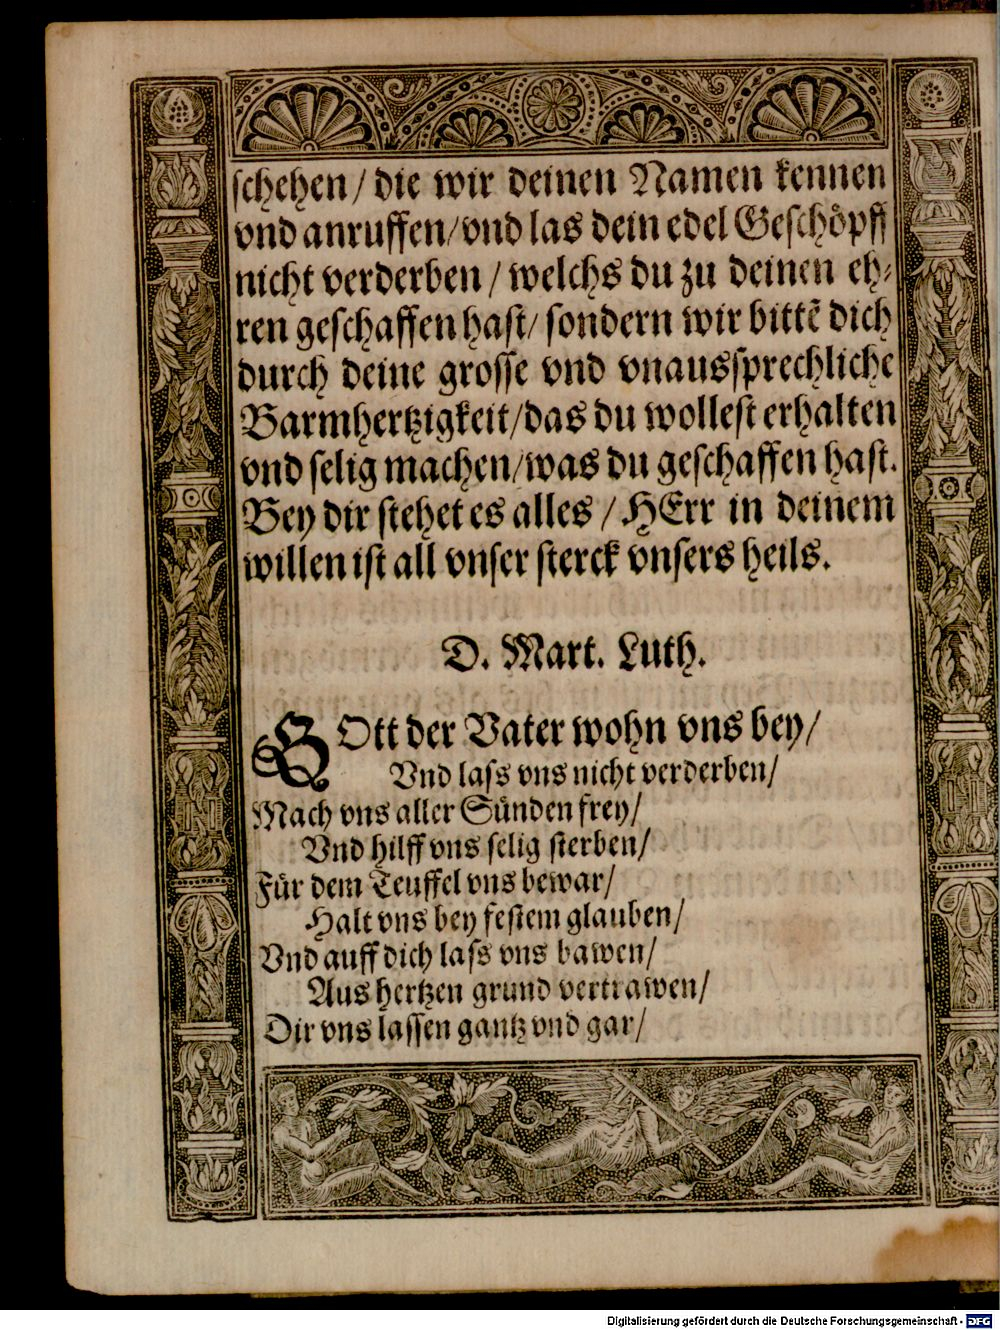 schehen / die wir deinen Namen kennen
vnd anruffen/vnd las dein edel Geschöpff
nicht verderben / welchs du zu deinen eh⸗
ren geschaffen hast/ sondern wir bittē dich
durch deine grosse vnd vnaussprechliche
Barmhertzigkeit/das du wollest erhalten
vnd selig machen/was du geschaffen hast.
Bey dir stehet es alles / HErr in deinem
willen ist all vnser sterck vnsers heils.
D. Mart. Luth.
GOtt der Vater wohn vns bey/
Vnd lass vns nicht verderben/
Mach vns aller Sünden frey/
Vnd hilff vns selig sterben/
Für dem Teuffel vns bewar/
Halt vns bey festem glauben/
Vnd auff dich lass vns bawen/
Aus hertzen grund vertrawen/
Dir vns lassen gantz vnd gar/
Digitalisierung gefördert durch die Deutsche Forschungsgemeinschaft - DFG